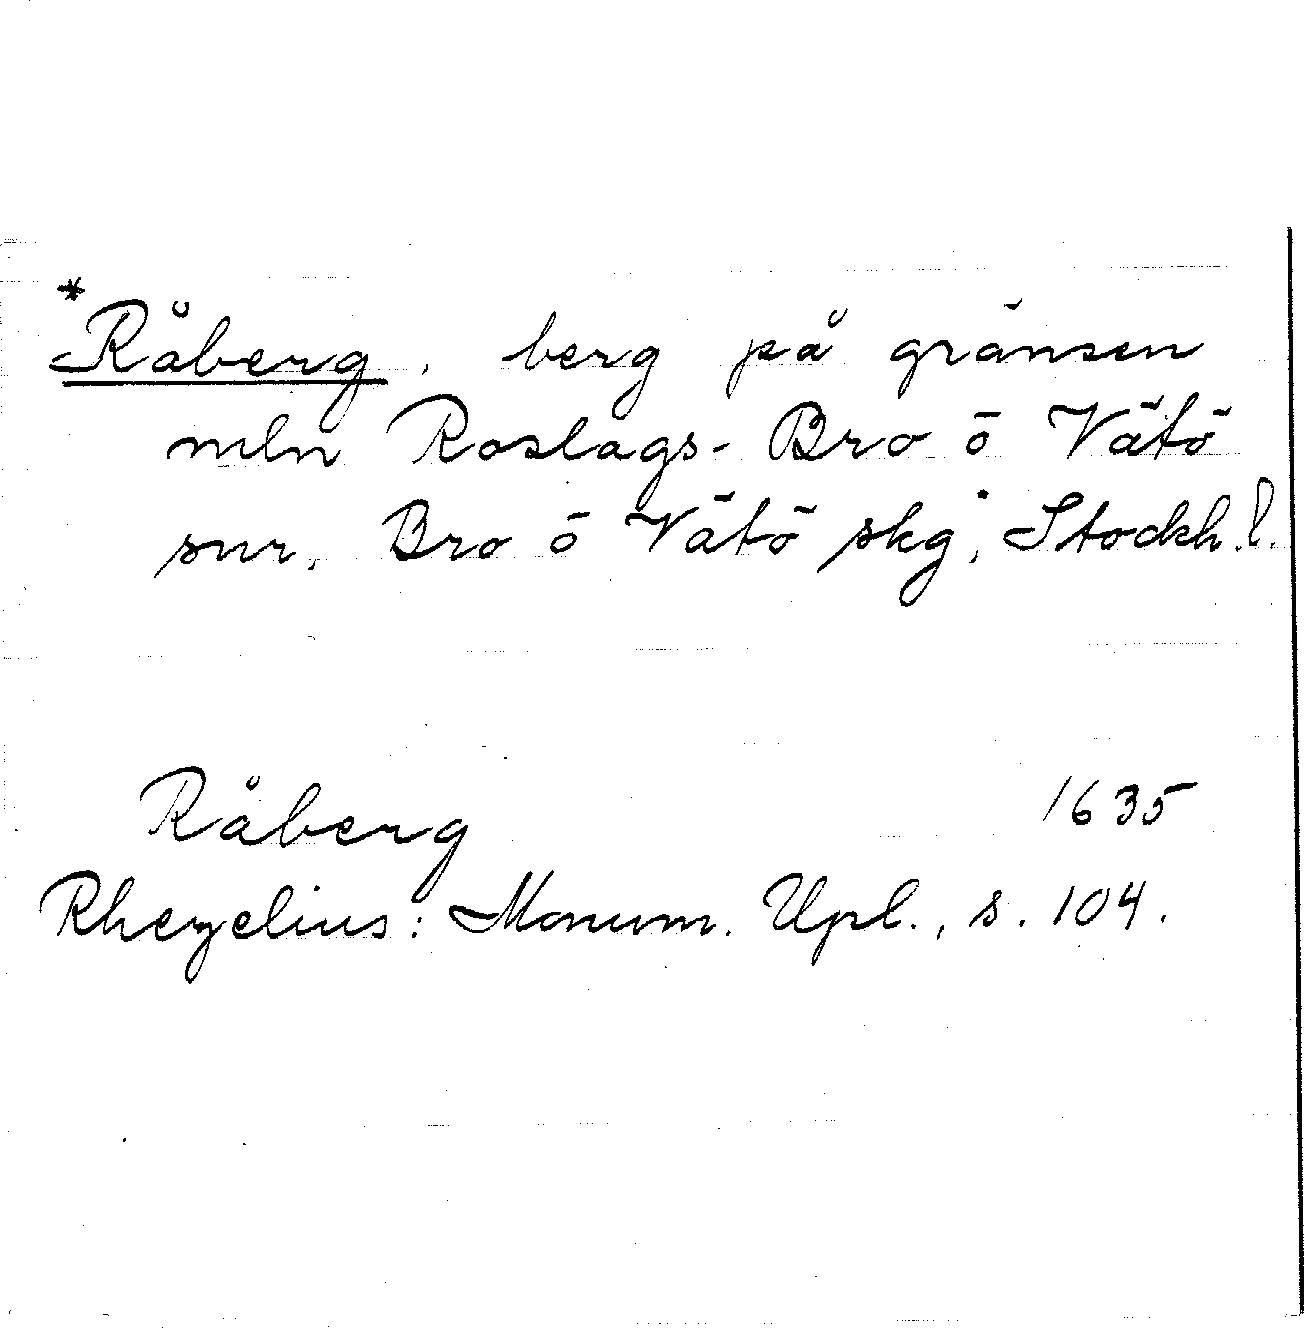 *Råberg, berg på gränsen
mln Roslags-Bro o Vätö
snr, Bro o Vätö skg, Stockh. l.
Råberg 1635
Rhezelius: Monum. Upl., s. 104.